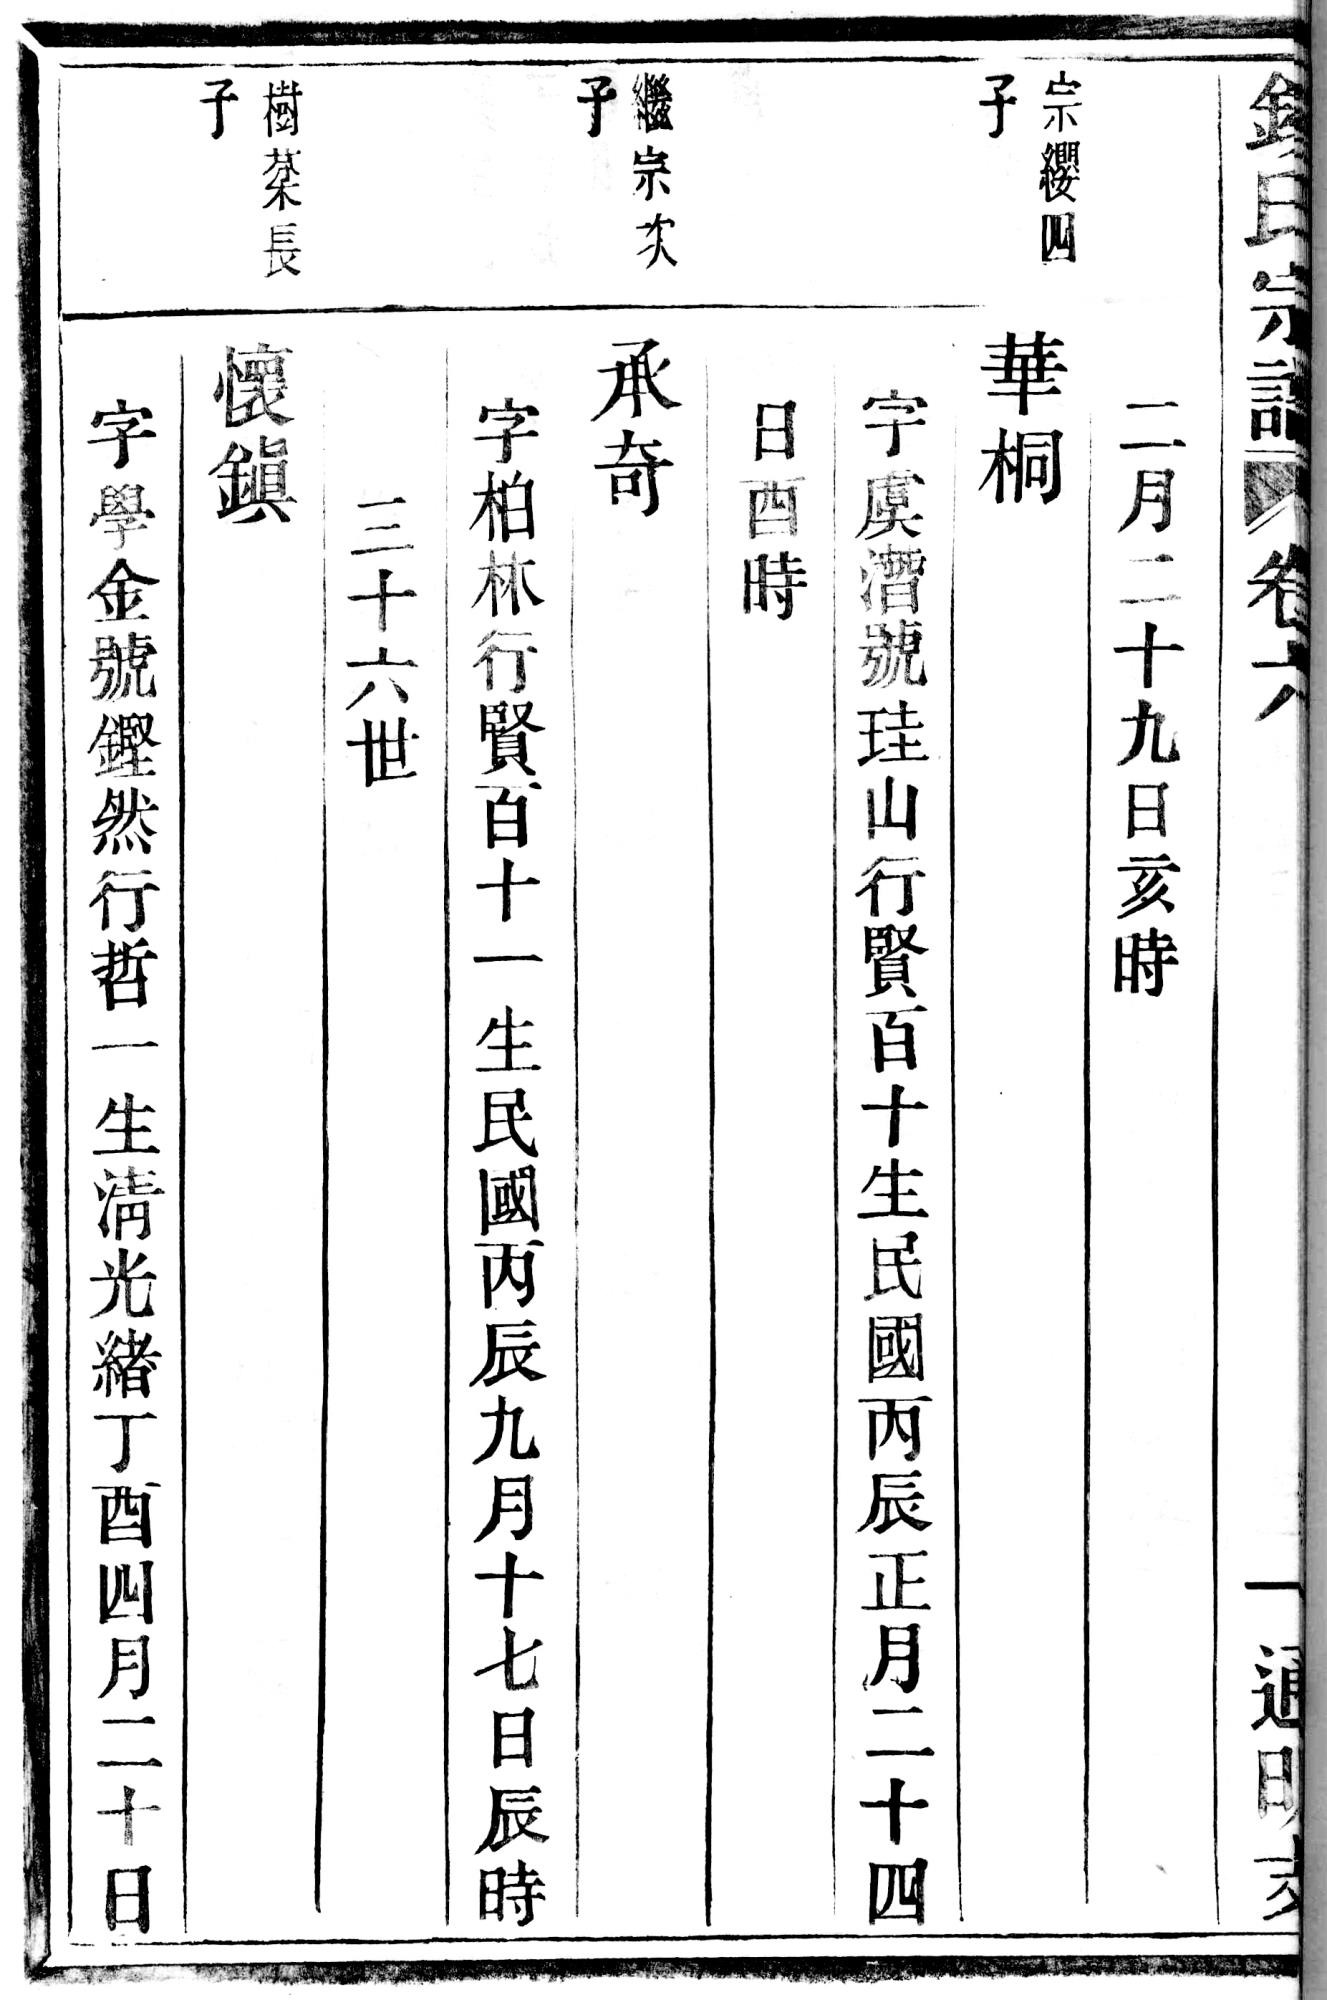 氏宗譜 卷六 一 通明支
二月二十九日亥時
宗纓四
子
華桐
字虞潛號珪山行賢百十生民國丙辰正月二十四
日酉時
繼宗次
子
承奇
字柏林行賢百十一生民國丙辰九月十七日辰時
三十六世
樹棻長
子
懷鎭
字學金號鏗然行哲一生淸光緒丁酉四月二十日